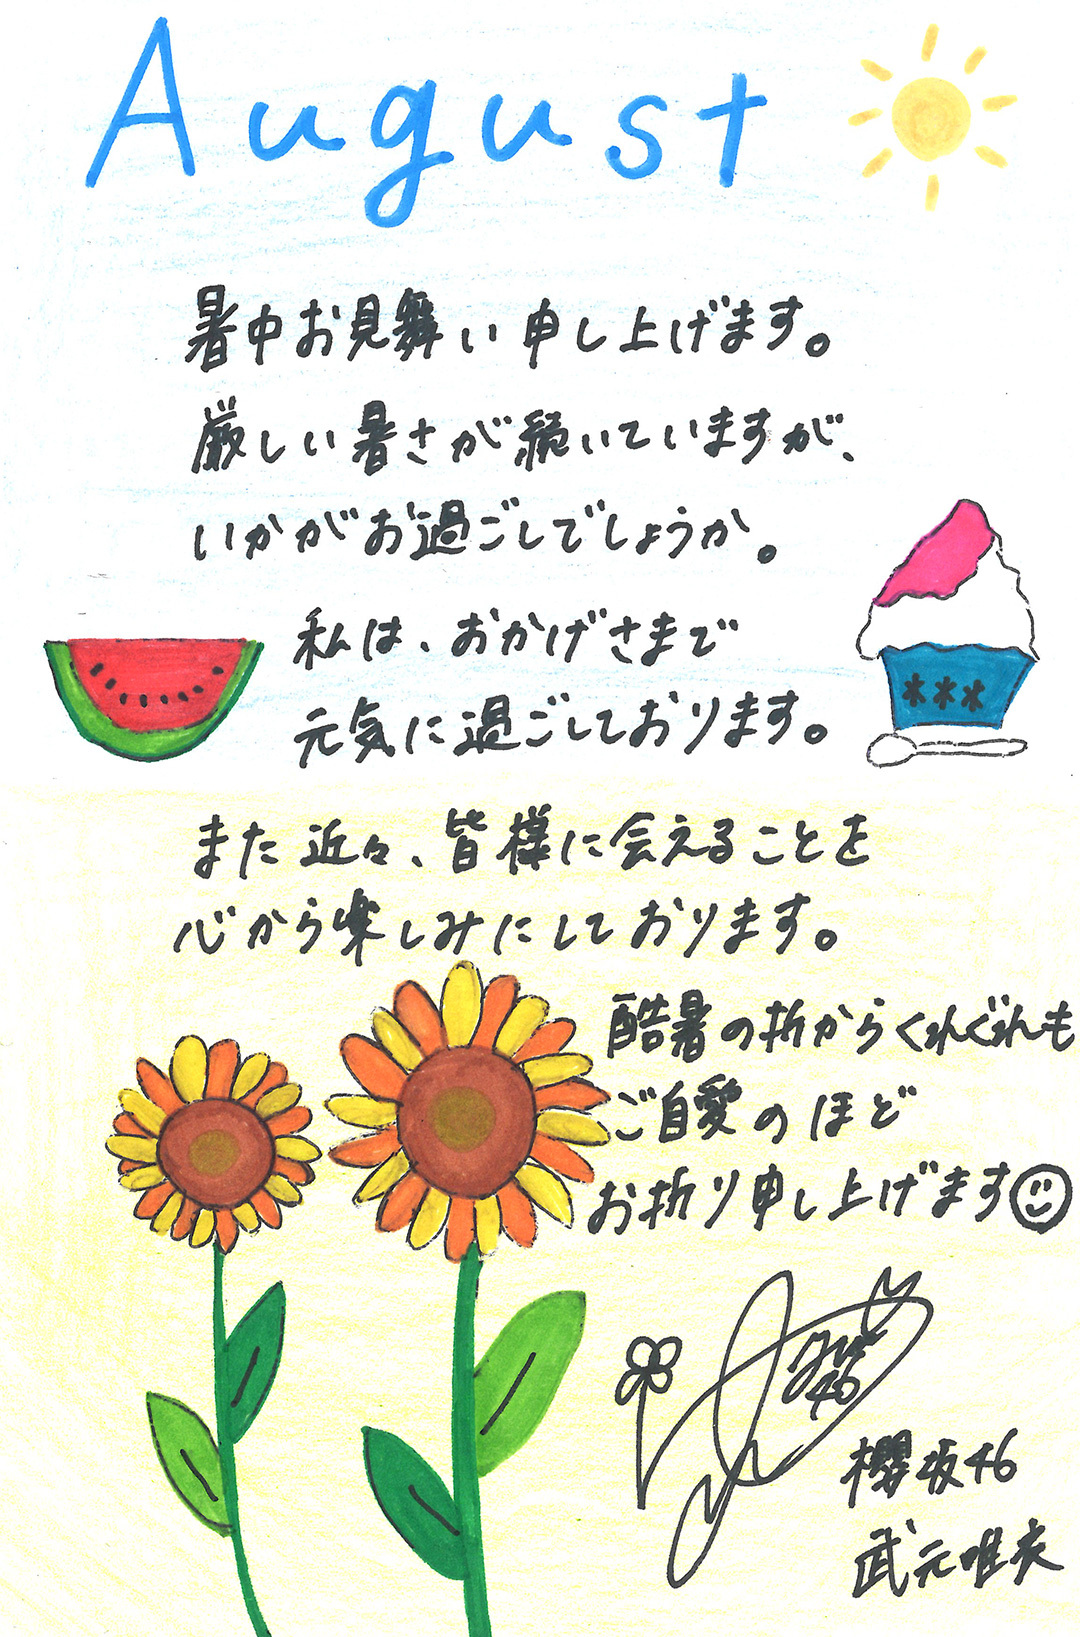 August
暑中お見舞い申し上げます。
厳しい暑さが続いていますが、
いかがお過ごしでしょうか。
私は、おかげさまで
元気に過ごしております。
また近々、皆様に会えることを
心から楽しみにしております。
酷暑の折からくれぐれも
ご自愛のほど
お折り申し上げます
46
櫻坂46
武元唯衣
***